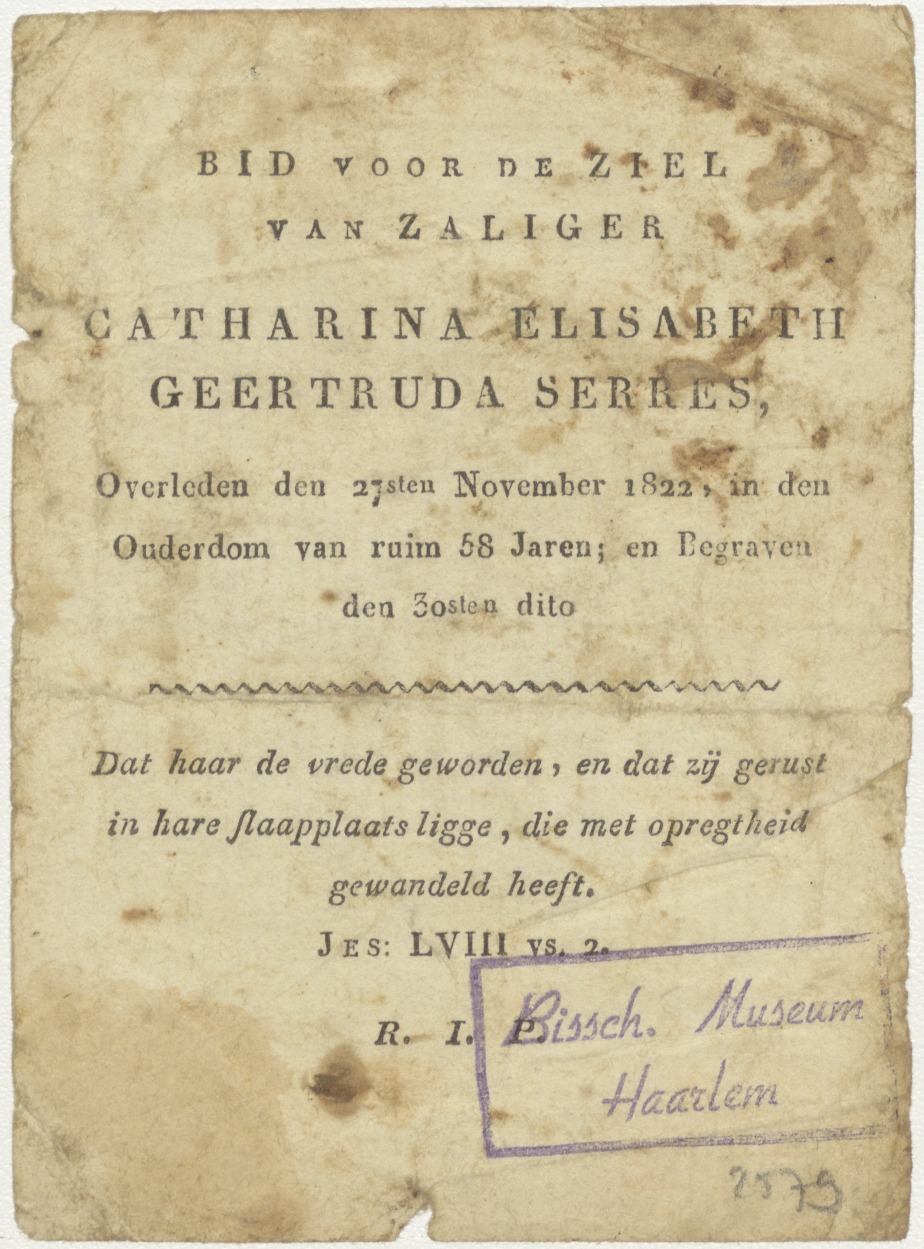 BID VOOR DE ZIEL
VAN ZALIGER
CATHARINA ELISABETH
GEERTRUDA SERRES,
Overleden den 27sten November 1822, in den
Ouderdom van ruim 58 Jaren; en Begraven
den 30sten dito
Dat haar de vrede geworden, en dat zij gerust
in hare ſlaapplaats ligge, die met opregtheid
gewandeld heeft.
JES: LVIII vs. 2.
R. I. P.
Bissch. Museum
Haarlem
2579